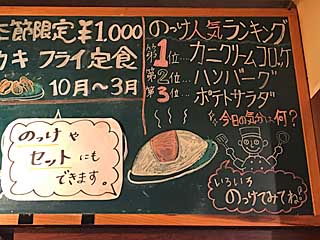 節限定 ¥1,000
カキ フライ 定食
10月〜3月
のっけや
セットにも
できます。
のっけ人気ランキング
第1位… カニクリームコロッケ
第2位… ハンバーグ
第3位… ポテトサラダ
今日の気分は何?
いろいろ
のっけてみてね。